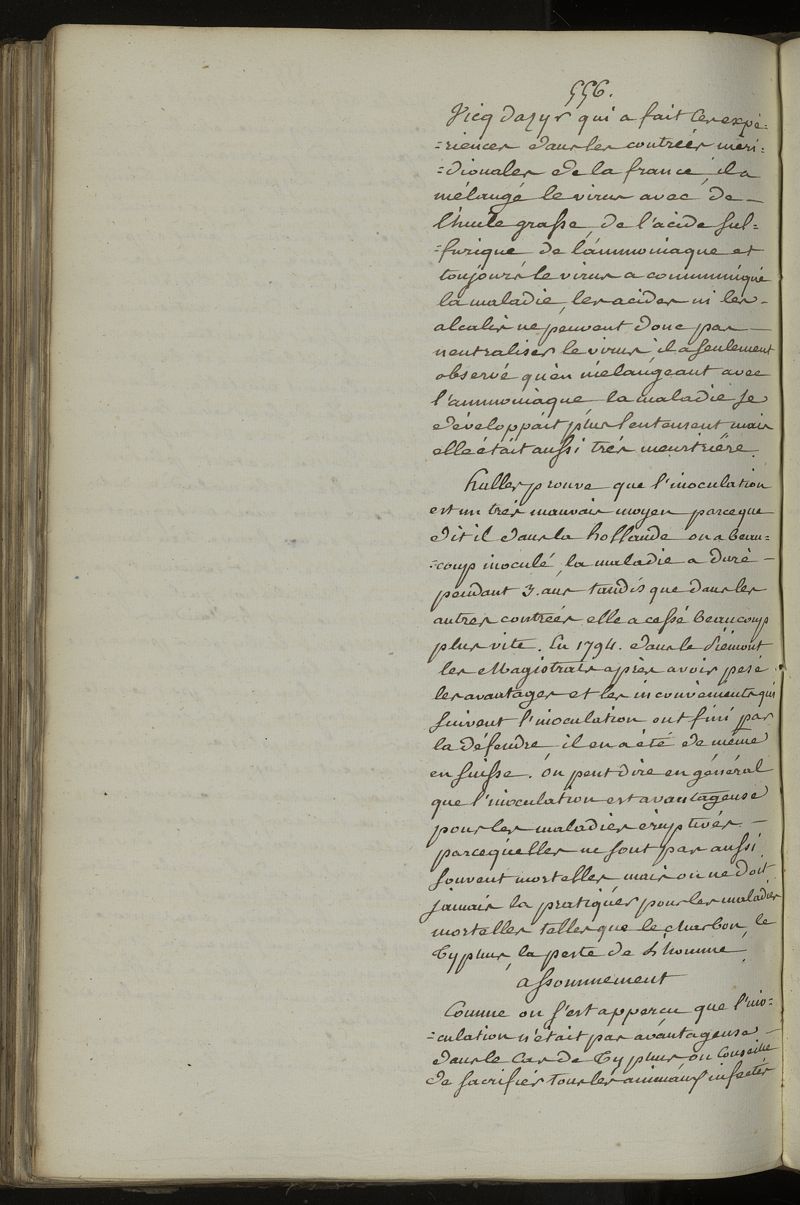 556.
Vicq dazyr qui a fait ces expé=
=riences dans les contrées méri=
=dionales de la france, il a
mélangé le virus avec de —
l'huile grasse, de l'acide sul=
=furique de l'ammoniaque et
toujours le virus a communiqué
la maladie, les acides ni les —
alcalis ne peuvent donc pas —
neutraliser le virus, il a seulement
observé qu'en mélangeant avec
l'ammoniaque la maladie se
développait plus lentement mais
elle était aussi très meurtrière.
huller prouve que l'inoculation
est un très mauvais moyen parceque
dit il dans la hollande on a beau=
=coup inoculé, la maladie a duré —
pendant 3. ans tandis que dans les
autres contrées elle a cessé beaucoup
plus vite. En 1794. dans le Piémont
les Magistrats après avoir pesé
les avantages et les inconvénients qui
suivent l'inoculation ont fini par
la défendre il en a été de même
en suisse. On peut dire en général
que l'inoculation est avantageuse
pour les maladies éruptives —
parcequ'elles ne sont pas aussi
souvent mortelles mais on ne doit
jamais la pratiquer pour les maladies
mortelles telles que le charbon, le
Typhus, la peste de L'homme.
assommement
Comme on s'est apperçu que l'ino=
=culation n'était pas avantageuse —
dans le Cas de Typhus on Conseille
de sacrifier tous les animaux infectés